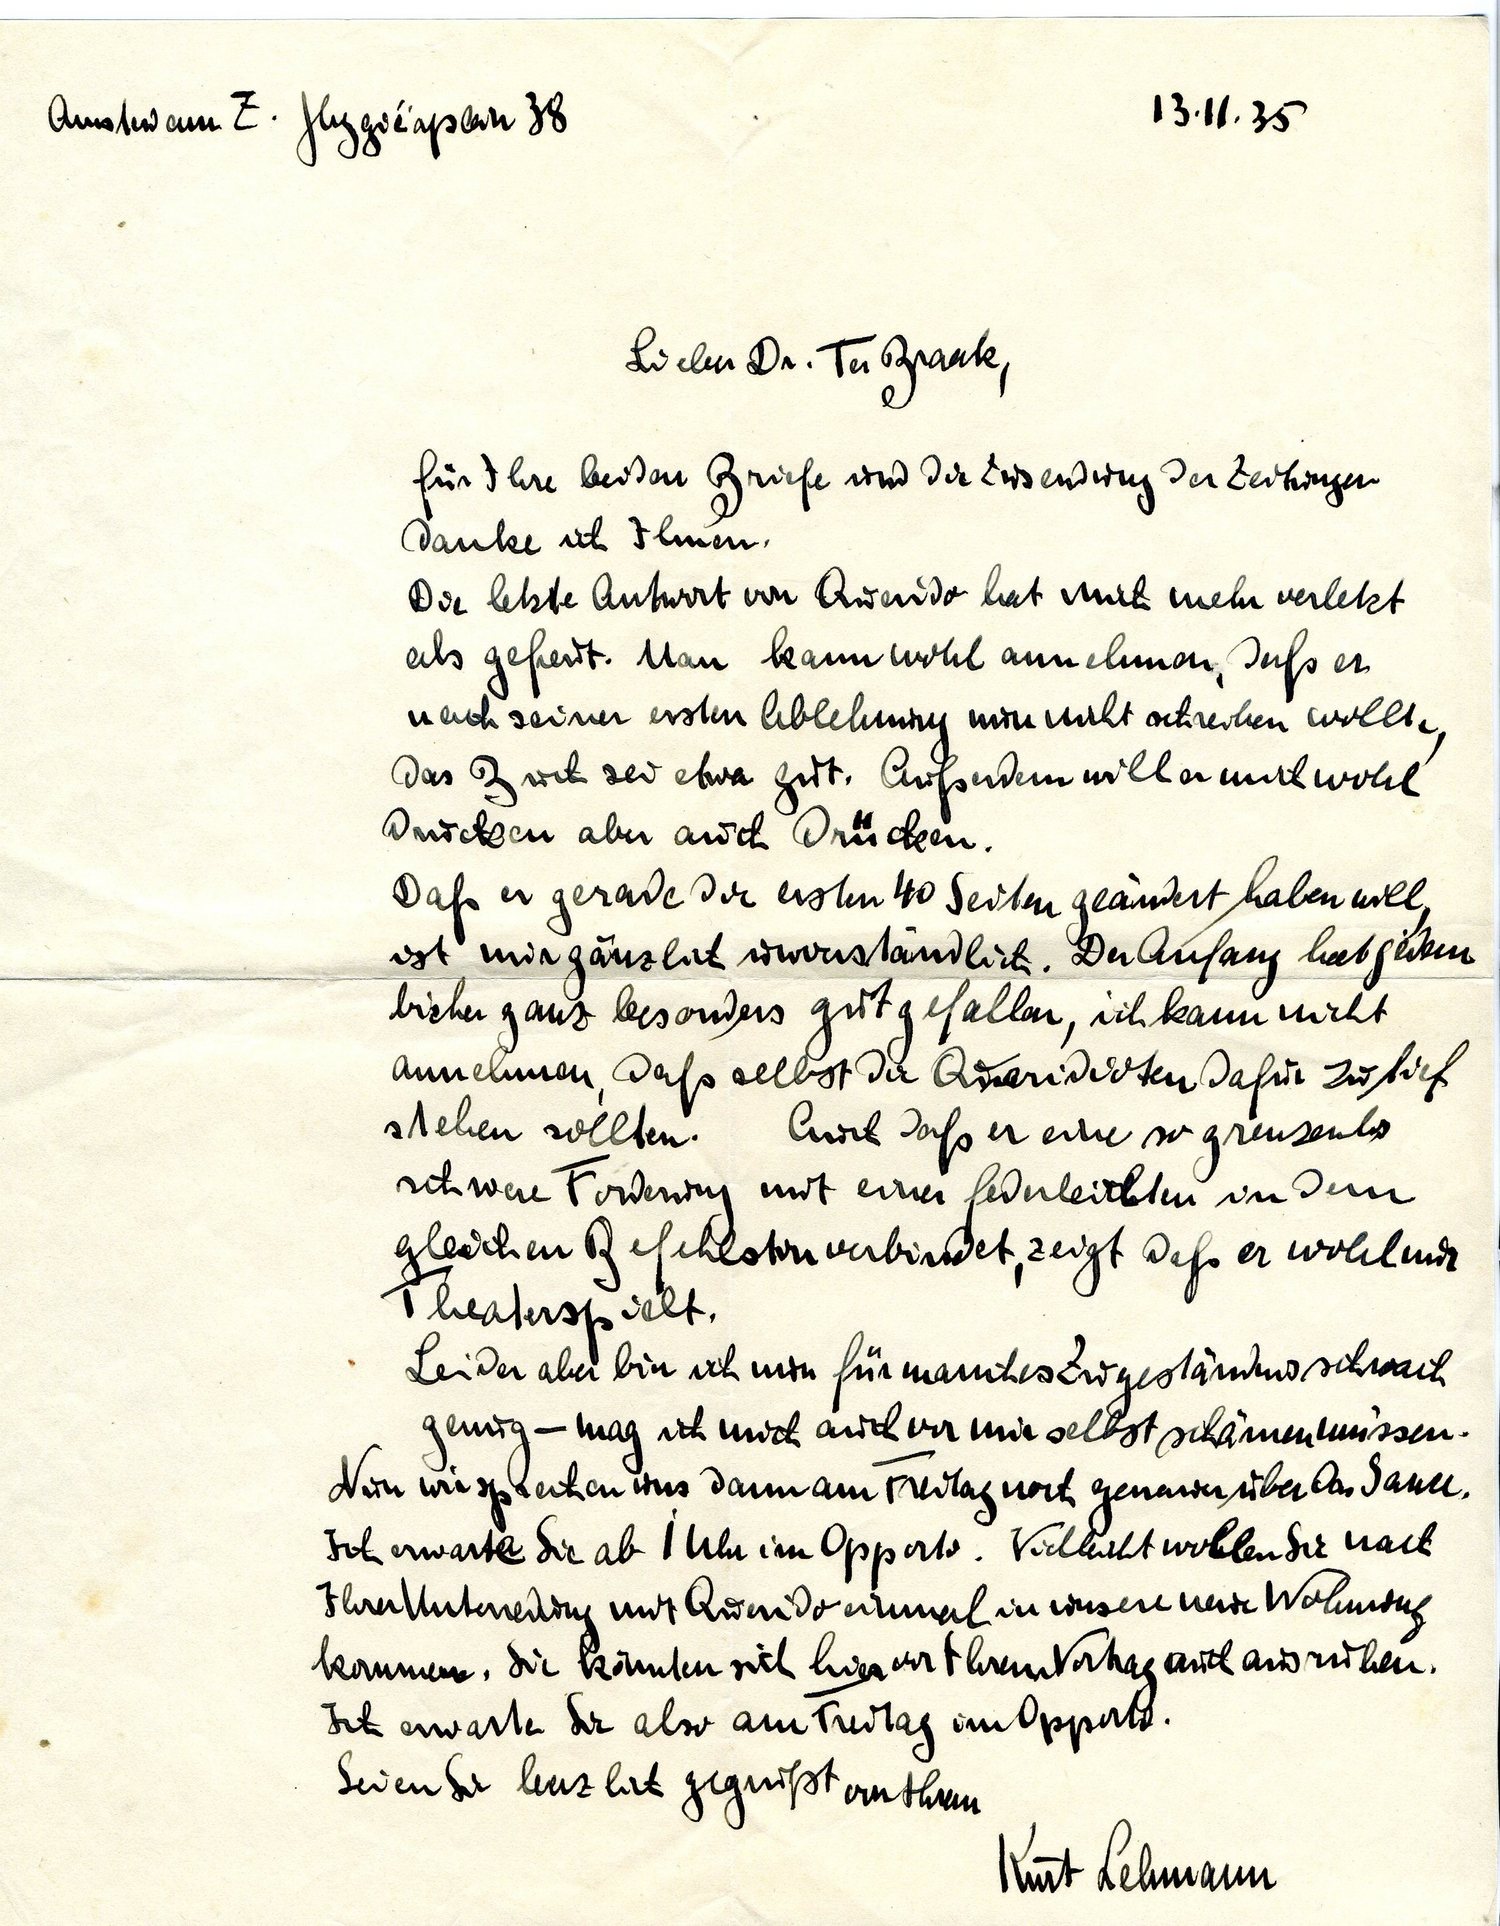 Amsterdam Z. Hygiëaplein 38
13.11.35
Lieber Dr. Ter Braak,
für Ihre beiden Briefe und die Zusendung der Zeitungen
danke ich Ihnen.
Die letzte Antwort von Querido hat mich mehr verletzt
als gefreut. Man kann wohl annehmen, dass er
nach seiner ersten Ablehnung nun nicht schreiben wollte,
das Buch sei etwa gut. Ausserdem will er mich wohl
drucken aber auch drücken.
Dass er gerade die ersten 40 Seiten geändert haben will,
ist mir gänzlich unverständlich. Der Anfang hat jedem
bisher ganz besonders gut gefallen, ich kann nicht
annehmen, dass selbst die Querididioten dafür zu tief
stehen sollten. Auch dass er eine so grenzenlos
schwere Forderung mit einer federleichten in dem
gleichen Befehlston verbindet, zeigt dass er wohl nur
Theater spielt.
Leider aber bin ich nun für manches Zugeständnis schwach
genug – mag ich mich auch vor mir selbst schämen müssen.
Nun wir sprechen uns dann am Freitag noch genauer über das Ganze.
Ich erwarte Sie ab 1 Uhr im Opporto. Vielleicht wollen Sie nach
Ihrer Unterredung mit Querido einmal in unsere neue Wohnung
kommen. Sie könnten sich hier vor Ihrem Vortrag auch ausruhen.
Ich erwarte Sie also am Freitag im Opporto.
Seien Sie herzlich gegrüßt von Ihrem
Kurt Lehmann